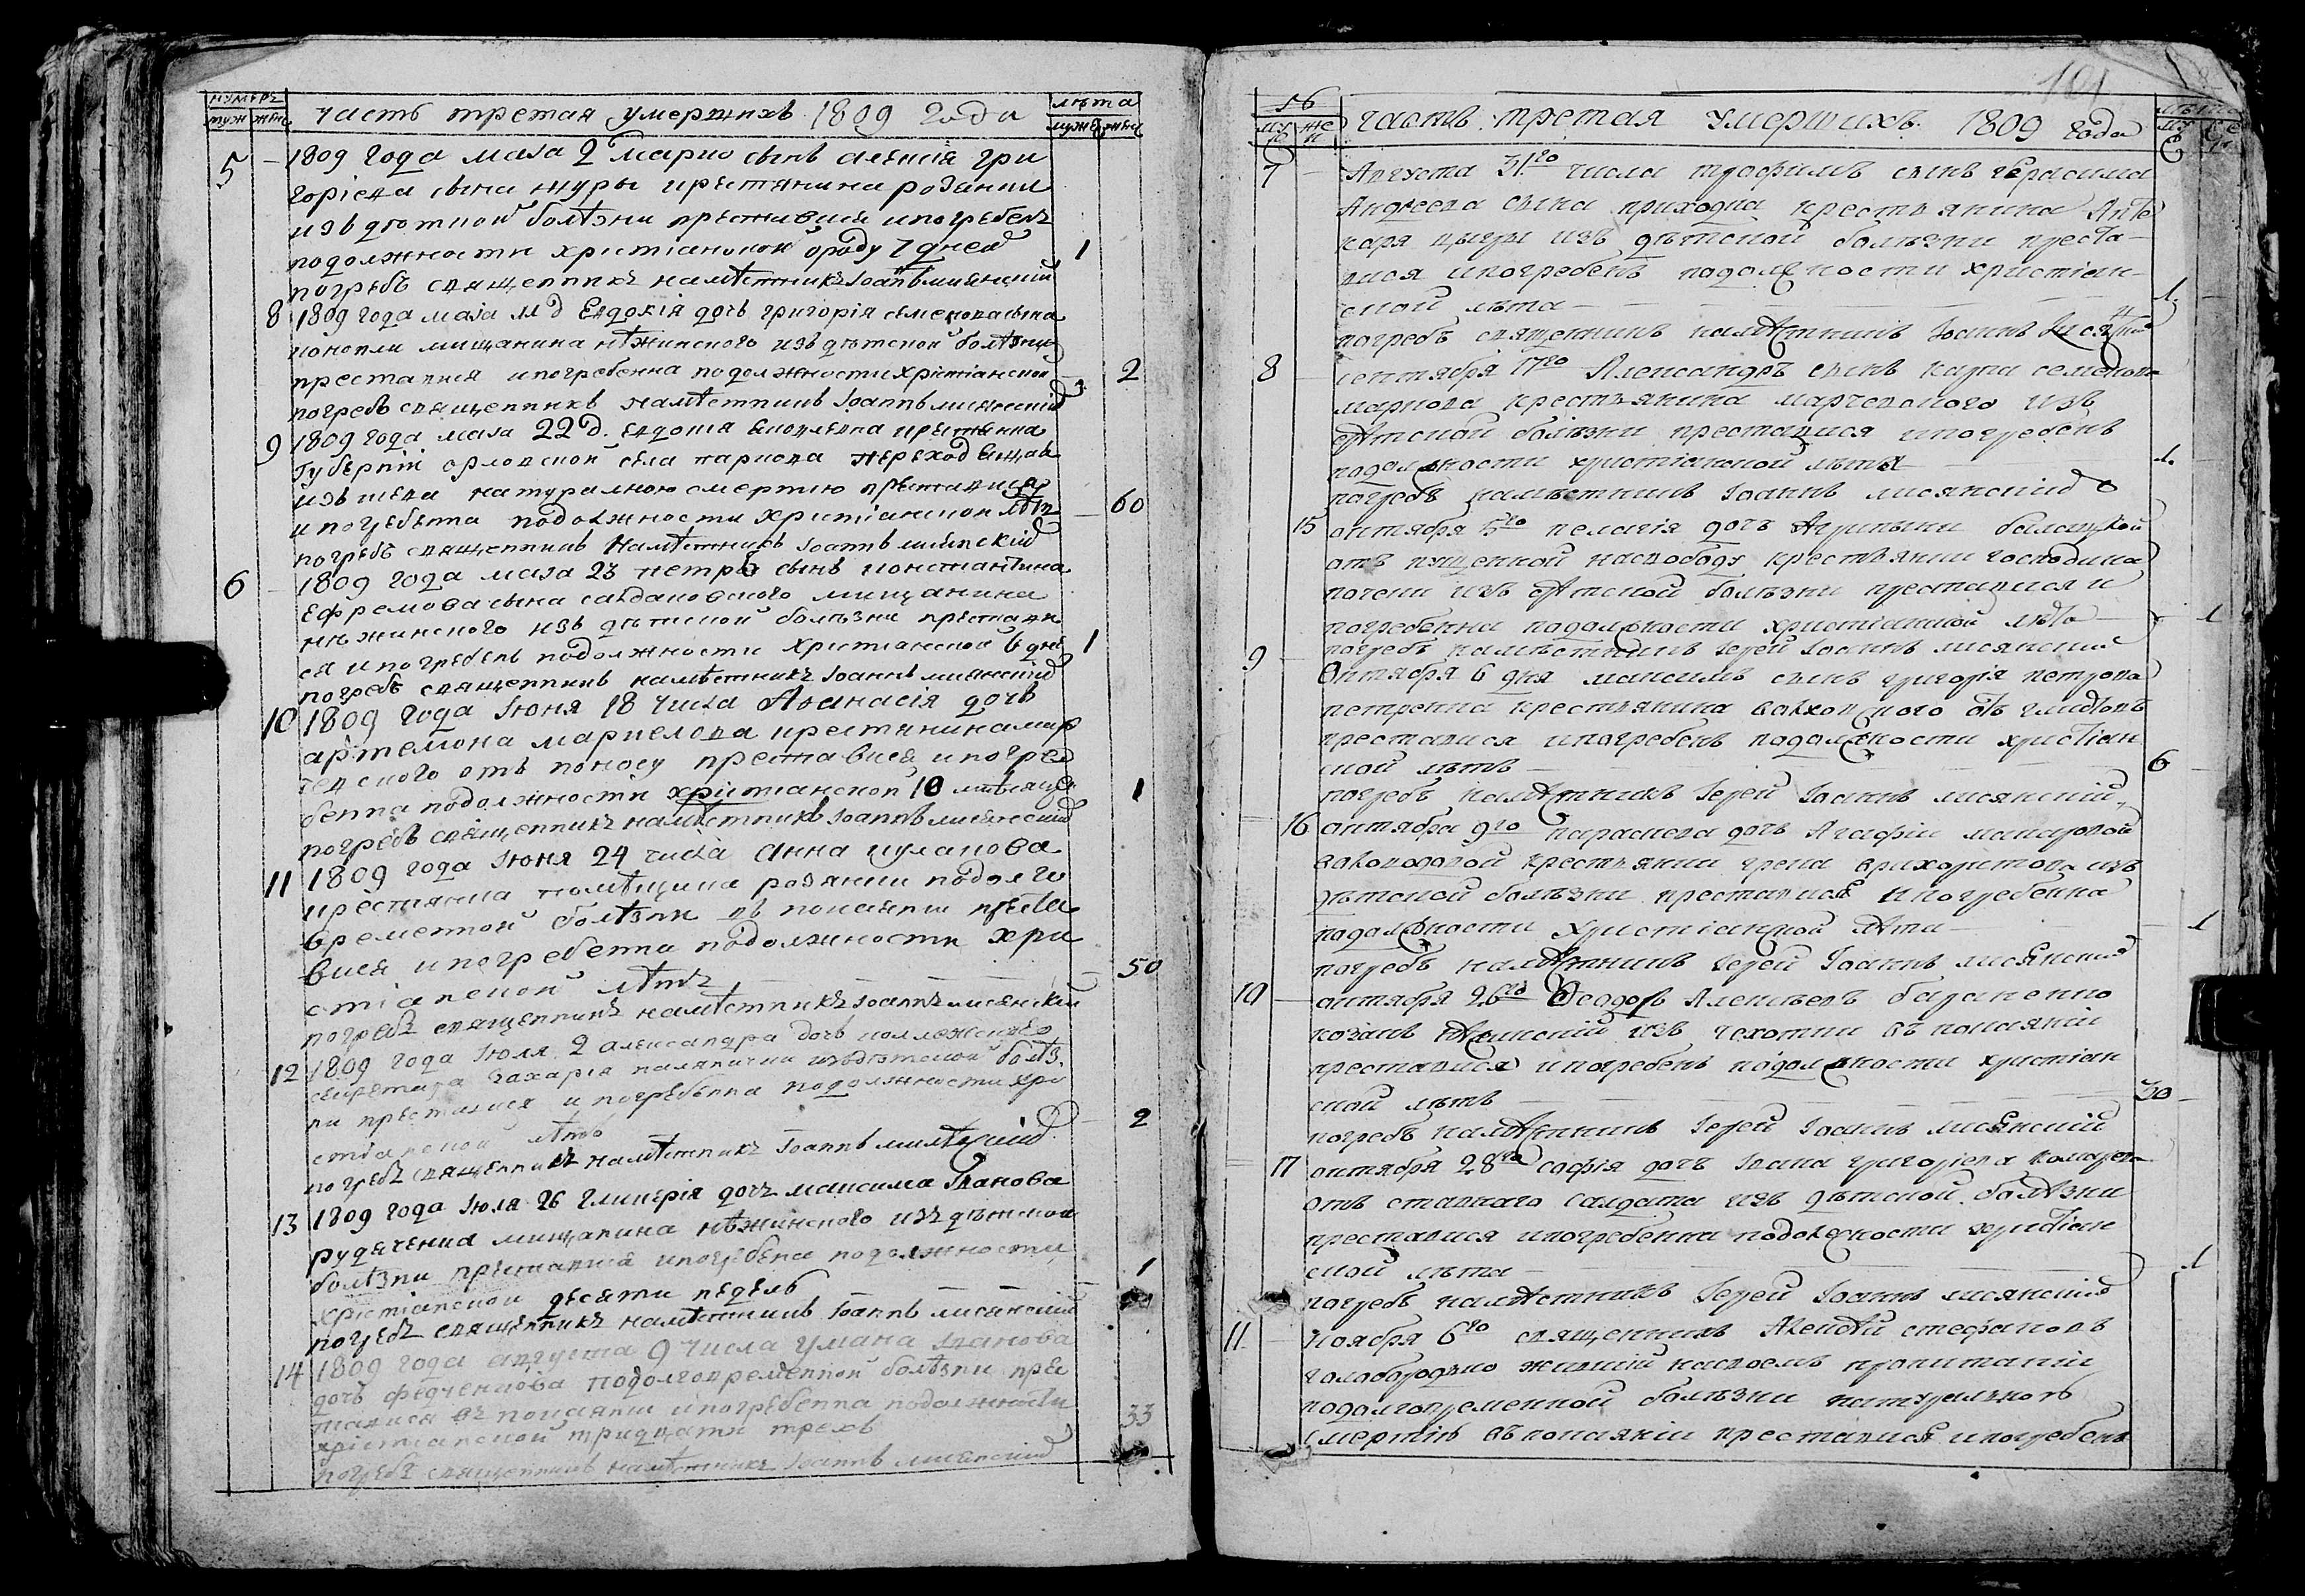 нумеръ
муж жен
часть третая умершихъ 1809 года
лѣта
мужс женс
5 1809 года маіа 2 марко сынъ алеѯія гри
горіева сына журы крестянина розанки
изъ дѣтской болѣзни преставися и погребенъ
подолжности христіанской ороду 7 дней 1
погребъ священникъ намѣстникъ Іоаннъ лисянскій
8 1809 года маіа 11 д Евдокія дочь григорія семенова сына
конопли мищанина нѣжинского изъ дѣтской болѣзни
преставися и погребенна подолжности христіанской 2
погребъ священникъ намѣстникъ Іоаннъ лисянскій
9 1809 года маіа 22 д. евдокія крестянка
губерніи орловской села
натуралною смертію преставися
и погребенна подолжности христіанской лѣтъ 60
погребъ священникъ намѣстникъ Іоаннъ лисянскій
6 1809 года маіа 23 петръ сынъ константина
Ефремова сына мищанина
нѣжинского изъ дѣтской болѣзни престави
ся и погребенъ подолжности христіанской 6 дней 1
погребъ священникъ намѣстникъ Іоаннъ лисянскій
10 1809 года Іюня 18 числа Афанасія дочь
артемона маркелова крестянина мар
чевского отъ поносу преставися и погре
бенна подолжности христіанской 10 мѣсяцей 1
погребъ священникъ намѣстникъ Іоаннъ лисянскій
11 1809 года Іюня 24 числа анна кулакова
крестянка помѣщика розанки подолго
временной болѣзни въ покаяніи преста
вися и погребенна подолжности хри
стіанской лѣтъ 50
погребъ священникъ намѣстникъ Іоаннъ лисянскій
12 1809 года Іюля 2 александра дочь коллежского
секретара Захарія изъ дѣтской болѣз
ни преставися и погребенна подолжности хри
стіанской лѣтъ 2
погребъ священникъ намѣстникъ Іоаннъ лисянскій
13 1809 года Іюля 26 гликерія дочь максима Іванова
рудеченка мищанина нѣжинского изъ дѣтской
болѣзни преставися и погребена подолжности 1
христіанской десяти недель
погребъ священникъ намѣстникъ Іоаннъ лисянскій
14 1809 года августа 9 числа Іванова
дочь федченкова подолговременной болѣзни пре
ставися въ покаяніи и погребенна подолжности
христіанской тридцати трехъ 33
погребъ священникъ намѣстникъ Іоаннъ лисянскій
101
16
часть третая умершихъ 1809 года
7 Августа 31го числа трофимъ сынъ герасима
Андреева сына крестьянина Апте
каря изъ дѣтской болѣзни преста
вися и погребенъ подолжности христіан
ской лѣта 1
погребъ священникъ намѣстникъ Іоаннъ Лисянскій
8 сентября 17го Александръ сынъ карпа семенова
маркова крестьянина марчевского изъ
дѣтской болѣзни преставися и погребенъ
подолжности христіанской лѣта 1
погребъ намѣстникъ Іоаннъ лисянскій
15 октября 5го пелагія дочь Агрипины
отъ пущенной насвободу крестьянки господина
почеки изъ дѣтской болѣзни преставися и
погребенна подолжности христіанской лѣта 1
погребъ намѣстникъ Іерей Іоаннъ лисянскій
9 Октября 6 дня максимъ сынъ григорія петрова
петренка крестьянина отъ глистовъ
преставися и погребенъ подолжности христіан
ской лѣтъ 6
погребъ намѣстникъ Іерей Іоаннъ лисянскій
16 октября 9го параскева дочь Агафіи макаровой
крестьянки грека изъ
дѣтской болѣзни преставися и погребенна
подолжности христіанской лѣта 1
погребъ намѣстникъ Іерей Іоаннъ лисянскій
10 октября 26го Ѳеодоръ Алеѯѣевъ бараненко
козакъ изъ чахотки въ покаяніи
преставися и погребенъ подолжности христіан
ской лѣтъ 30
погребъ намѣстникъ Іерей Іоаннъ лисянскій
17 октября 28го софія дочь Івана григорьева
отъ ставнаго салдата изъ дѣтской болѣзни
преставися и погребенна подолжности христіан
ской лѣта 1
погребъ намѣстникъ Іерей Іоаннъ лисянскій
11 Ноября 6го священникъ Алеѯѣй стефановъ
голобородко жившій насвоемъ пропитаніи
подолговременной болѣзни натуралною
смертію въ покаяніи преставися и погребенъ